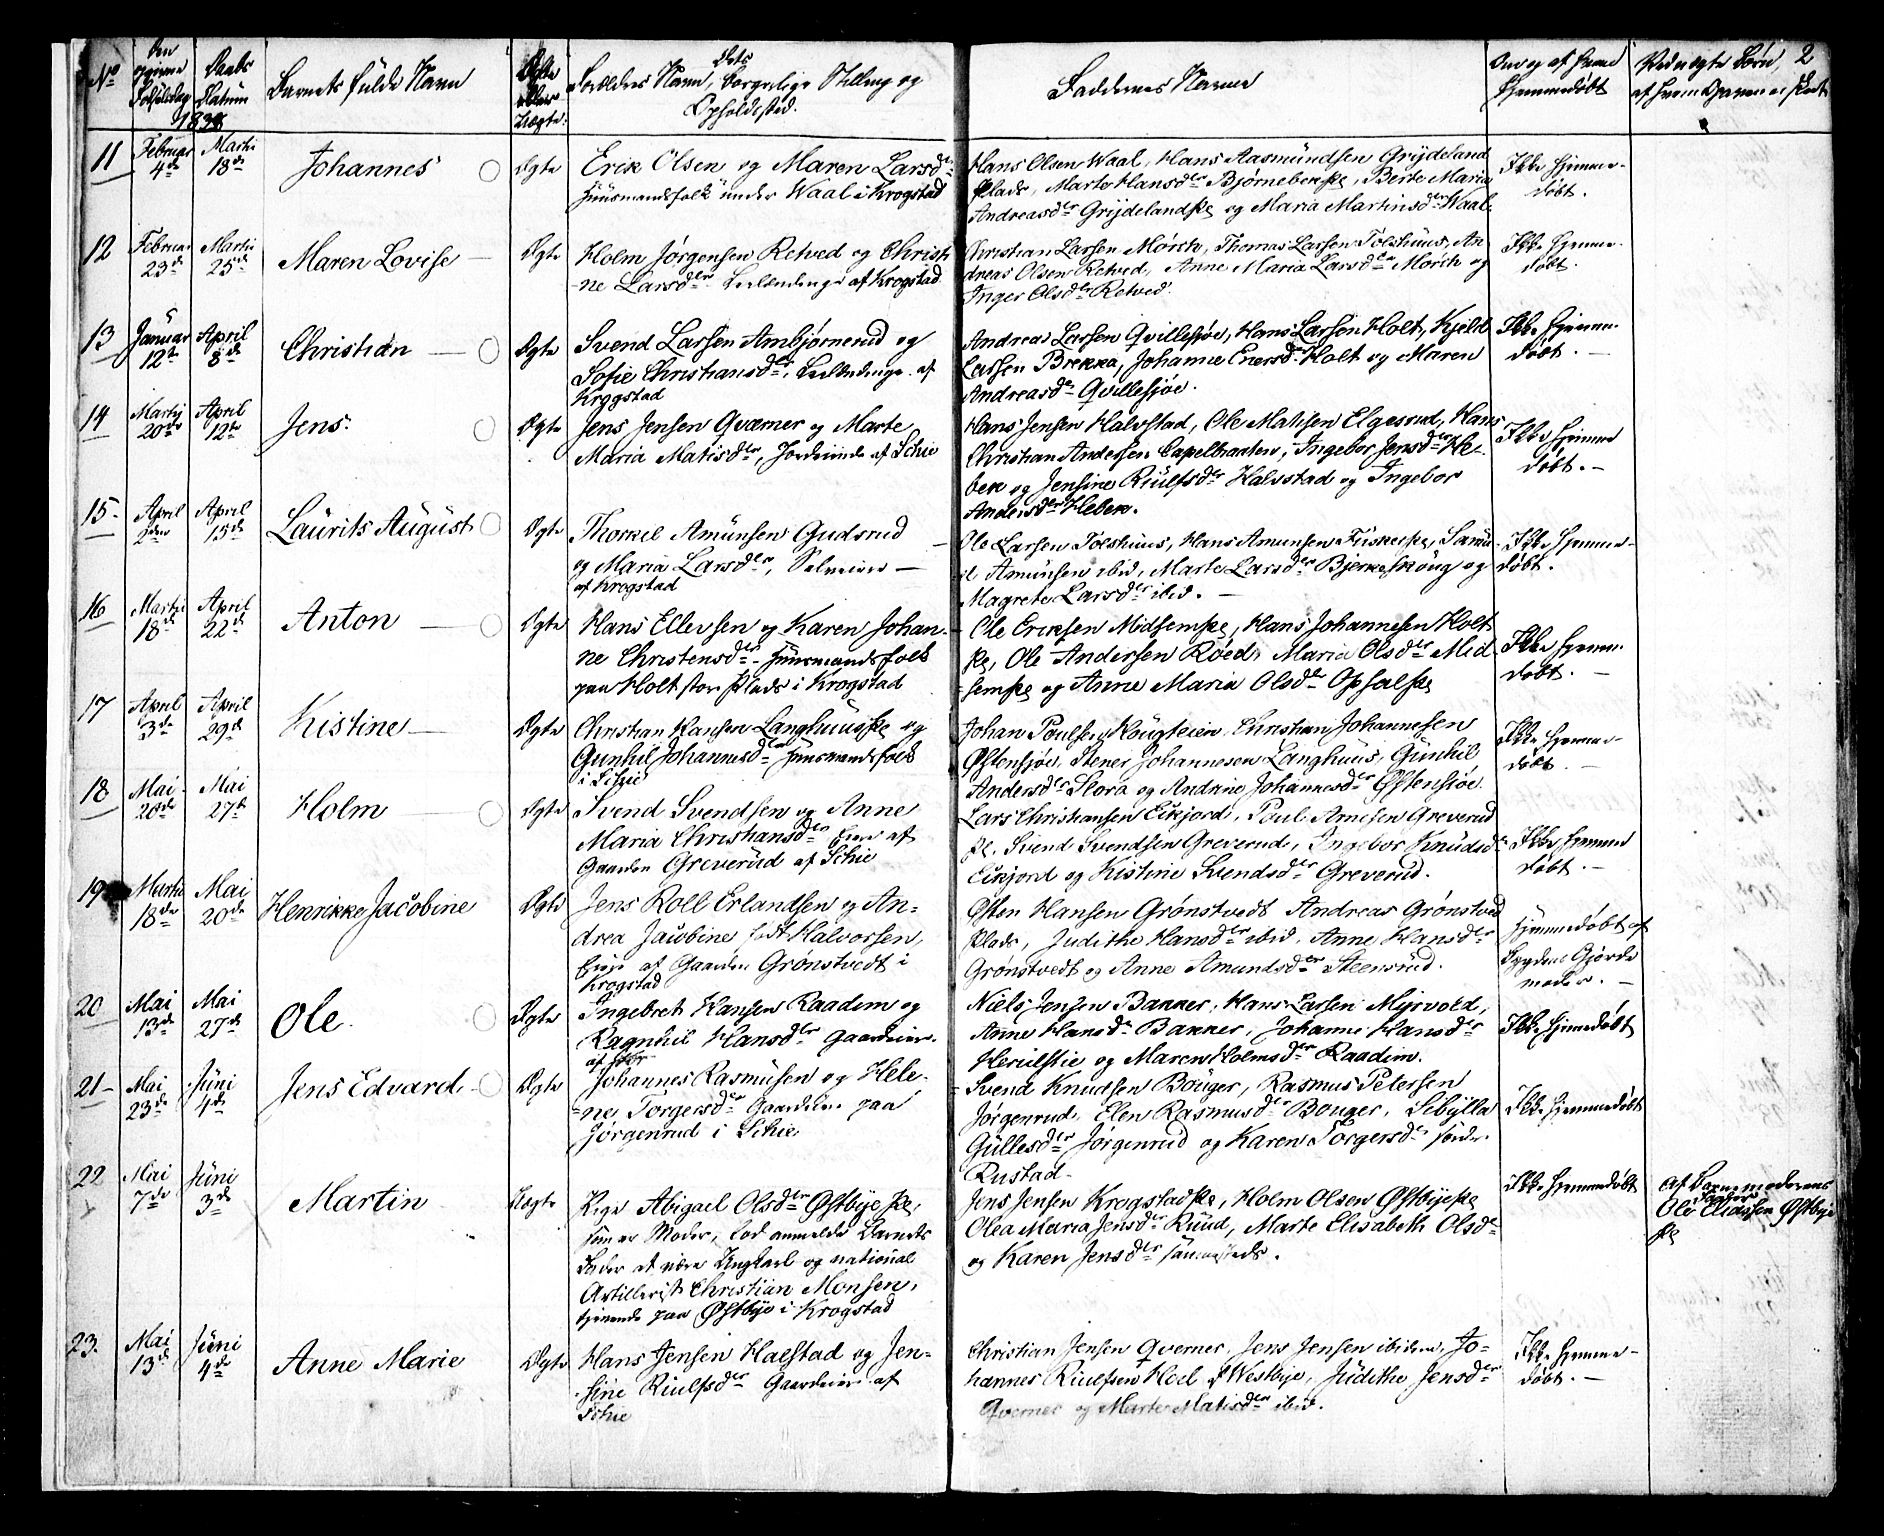 No
Den
opgivne
Fødselsdag
Daabs
Datum
Barnets fulde Navn
Ægte
eller
Uægte.
Dets
Forældres Navn, borgerlige Stilling og
Opholdssted.
Faddernes Navne
Om og af hvem
hjemmedøbt
Ved uægte Børn,
af hvem Opgaven er skeet
2
11
Februar
4de
Martii
18de
Johannes
Ægte
Erik Olsen og Maren Larsdtr
Huusmandsfolk under Waal i Krogstad
Hans Olsen Waal, Hans Aasmundsen Grydeland
Plads, Marte Hansdtr Bjørnebekpl, Berte Maria
Andreasdtr Grydelandpl og Maria Martinsdtr Waal.
Ikke hjemme-
døbt.
12
Februar
23de
Martii
25de
Maren Lovise
Ægte
Holm Jørgensen Retved og Christi
-ne Larsdtr Leilændinge af Krogstad
Christian Larsen Mørch, Thomas Larsen Tolshuus, An-
dreas Olsen Retved, Anne Maria Larsdtr Mørch og
Inger Olsdtr Retved.
Ikke hjemme-
døbt.
13
Januar
12te
April
8de
Christian
Ægte
Svend Larsen Ambjørnerud og
Sofie Christiansdtr, Leilændinge af
Krogstad
Andreas Larsen Qvillesjøe, Hans Larsen Holt, Kjeld
Larsen Brekka, Johanne Enersdtr Holt og Maren
Andreasdtr Qvillesjøe.
Ikke hjemme-
døbt.
14
Martij
20de
April
12te
Jens
Ægte
Jens Jensen Qværner og Marte
Maria Matisdtr, Jordeiende af Schie
Hans Jensen Halvstad, Ole Matisen Elgesrud, Hans
Christian Andersen Capelbraaten, Ingebor Jensdtr He-
bek og Jensine Riulfsdtr Halvstad og Ingebor
Andersdtr Hebek.
Ikke hjemme
døbt.
15.
April
2den
April
15de
Laurits August
Ægte
Thorkil Amunsen Gudsrud
og Maria Larsdtr, Selveiere
af Krogstad
Ole Larsen Tolshuus, Hans Amunsen Fuskepl, Samu-
el Amunsen ibid, Marte Larsdtr Bjerkeskoug og
Magrete Larsdtr ibid.
Ikke hjemme-
døbt.
16
Martii
18de
April
22de
Anton
Ægte
Hans Ellevsen og Karen Johan-
ne Christensdtr Huusmandsfolk
paa Holt store Plads i Krogstad
Ole Eriksen Midsempl, Hans Johannesen Holt
pl, Ole Andersen Røed, Maria Olsdtr Mid
sempl og Anne Maria Olsdtr Opsalpl
Ikke hjemme-
døbt.
17
April
3de
April
29de
Kistine
Ægte
Christian Hansen Langhuuspl og
Gunhil Johannesdtr Huusmandsfolk
i Schie
Johan Poulsen Kougteien, Christian Johannesen
Østensjøe, Stener Johannesen Langhuus, Gunhil
Andersdtr Slora og Andrine Johannesdtr Østensjøe
Ikke hjemme-
døbt.
18
Mai
20de
Mai
27de
Holm
Ægte
Svend Svendsen og Anne
Maria Christiansdtr Eiere af
Gaarden Greverud af Schie
Lars Christiansen Eikjord, Poul Arnesen Greverud
pl, Svend Svendsen Greverud, Ingebor Knudsdtr
Eikjord og Kistine Svendsdtr Greverud.
Ikke hjemme
døbt.
19
Martii
18de
Mai
20de
Henrikke Jacobine
Ægte
Jens Roll Erlandsen og An-
drea Jacobine født Halvorsen,
Eiere af Gaarden Grønstvedt i
Krogstad
Østen Hansen Grønstvedt Andreas Grønstved
Plads, Judithe Hansdtr ibid, Anne Hansdtr
Grønstvedt og Anne Amundsdtr Steensrud.
Hjemmedøbt af
Bygdens Gjorde-
moder.
20
Mai
13de
Mai
27de
Ole
Ægte
Ingebret Hansen Raadim og
Ragnhil Hansdtr Gaardeiere
Niels Jensen Bakker, Hans Larsen Myrvold,
Anne Hansdtr Bakker, Johanne Hansdtr
Heiulstie og Maren Holmsdtr Raadim.
Ikke hjemmedøbt
21
Mai
23de
Juni
4de
Jens Edvard
Ægte
Johannes Rasmusen og Hele-
ne Torgersdtr Gaardeiere paa
Jørgenrud i Schie
Svend Knudsen Bouger, Rasmus Petersen
Jørgenrud, Elen Rasmusdtr Bouger, Sibylla
Gullesdtr Jørgenrud og Karen Torgersdtr søndr
Rustad
Ikke hjemmedøbt
22
Mai
7de
Juni
3de
Martin
Uægte
Pige Abigael Olsdtr Østbyepl,
hun er Moder, lod anmelde Barnets
Fader at være Ungkarl og national
Artillerist Christian Monsen,
tjenende paa Østbye i Krogstad
Jens Jensen Krogstadpl, Holm Olsen Østbyepl
Olea Maria Jensdtr Ruud, Marte Elisabeth Olsdtr
og Karen Jensdtr sammesteds.
Ikke hjemmedøbt
Af Barnemoderens
Fader
Ole Eliassen Østbye
pl
23.
Mai
13de
Juni
4de
Anne Marie
Ægte
Hans Jensen Halstad og Jen-
sine Riulfsdtr Gaardeiere af
Schie
Christian Jensen Qverner, Jens Jensen ibidem, Jo-
hannes Riulfsen Hoel i Westbye, Judithe Jensdtr
Qverner og Marte Matisdtr ibid.
Ikke hjemme-
døbt.